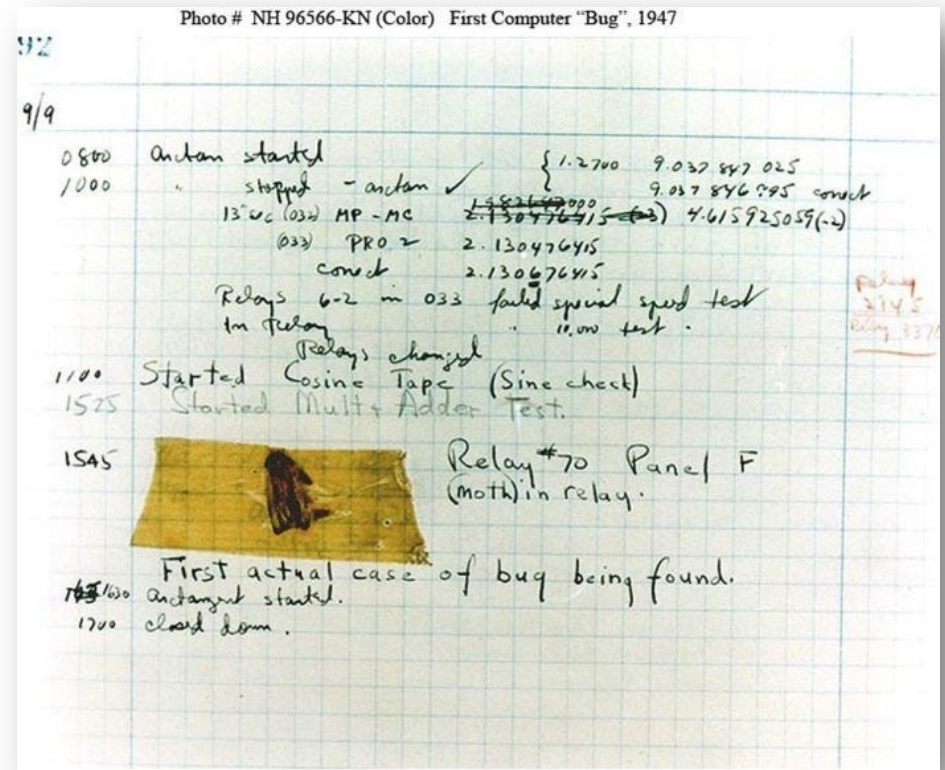 Photo # NH 96566-KN (Color) First Computer “Bug”, 1947
92
9/9
0800 antan started { 1.2700 9.037 847 025
1000 " stopped - antan ✓ 9.037 846 995 conect
13" uc (032) MP - MC 1.982647000 2.130476415 (-3) 4.615925059(-2)
(033) PRO 2 2.130476415
conect 2.130676415
Relays 6-2 in 033 failed special speed test
In Relay " 10.000 test .
Relay
2145
Relay 3370
Relays changed
1100 Started Cosine Tape (Sine check)
1525 Started Mult + Adder Test.
1545 Relay #70 Panel F
(moth) in relay.
First actual case of bug being found.
1630 antangent started.
1700 closed down.